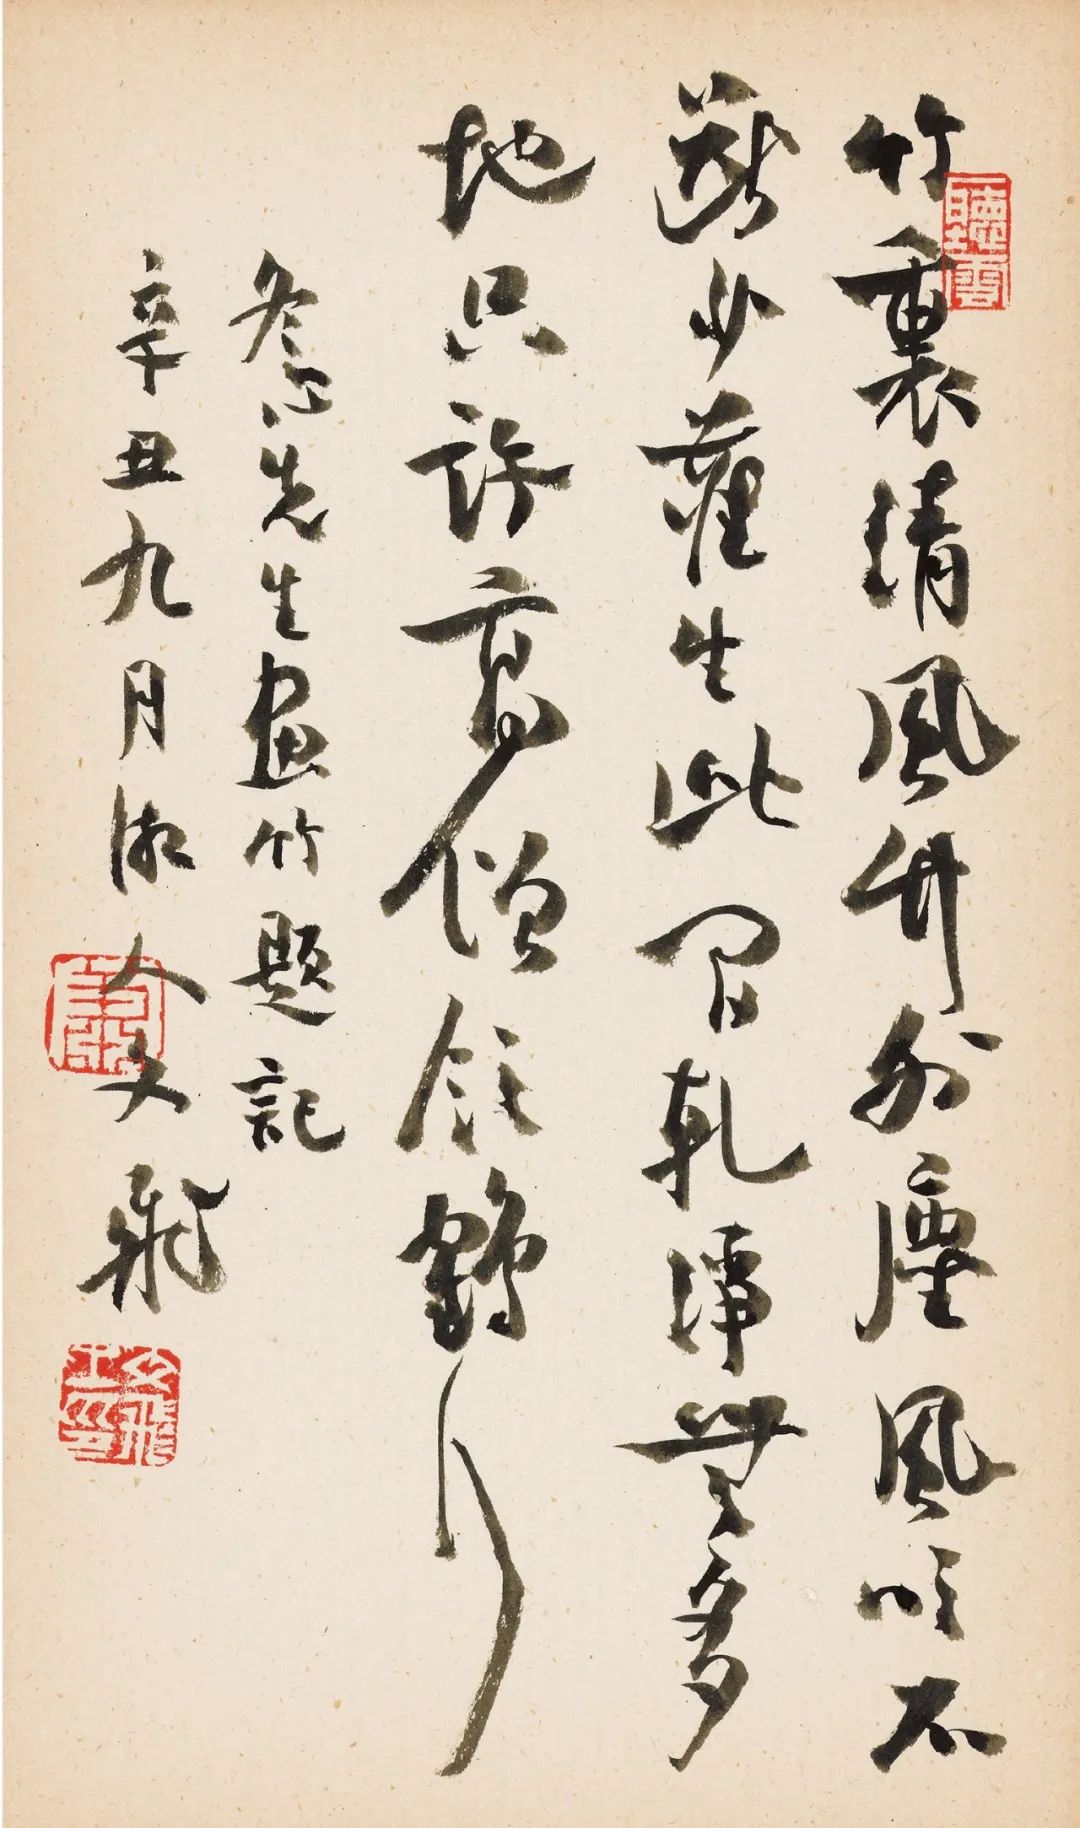 聽雲
竹裏清風竹外塵風吹不
斷少塵生此間乾淨無多
地只許高僧領鶴行
冬心先生畫竹題記
辛丑九月 飛